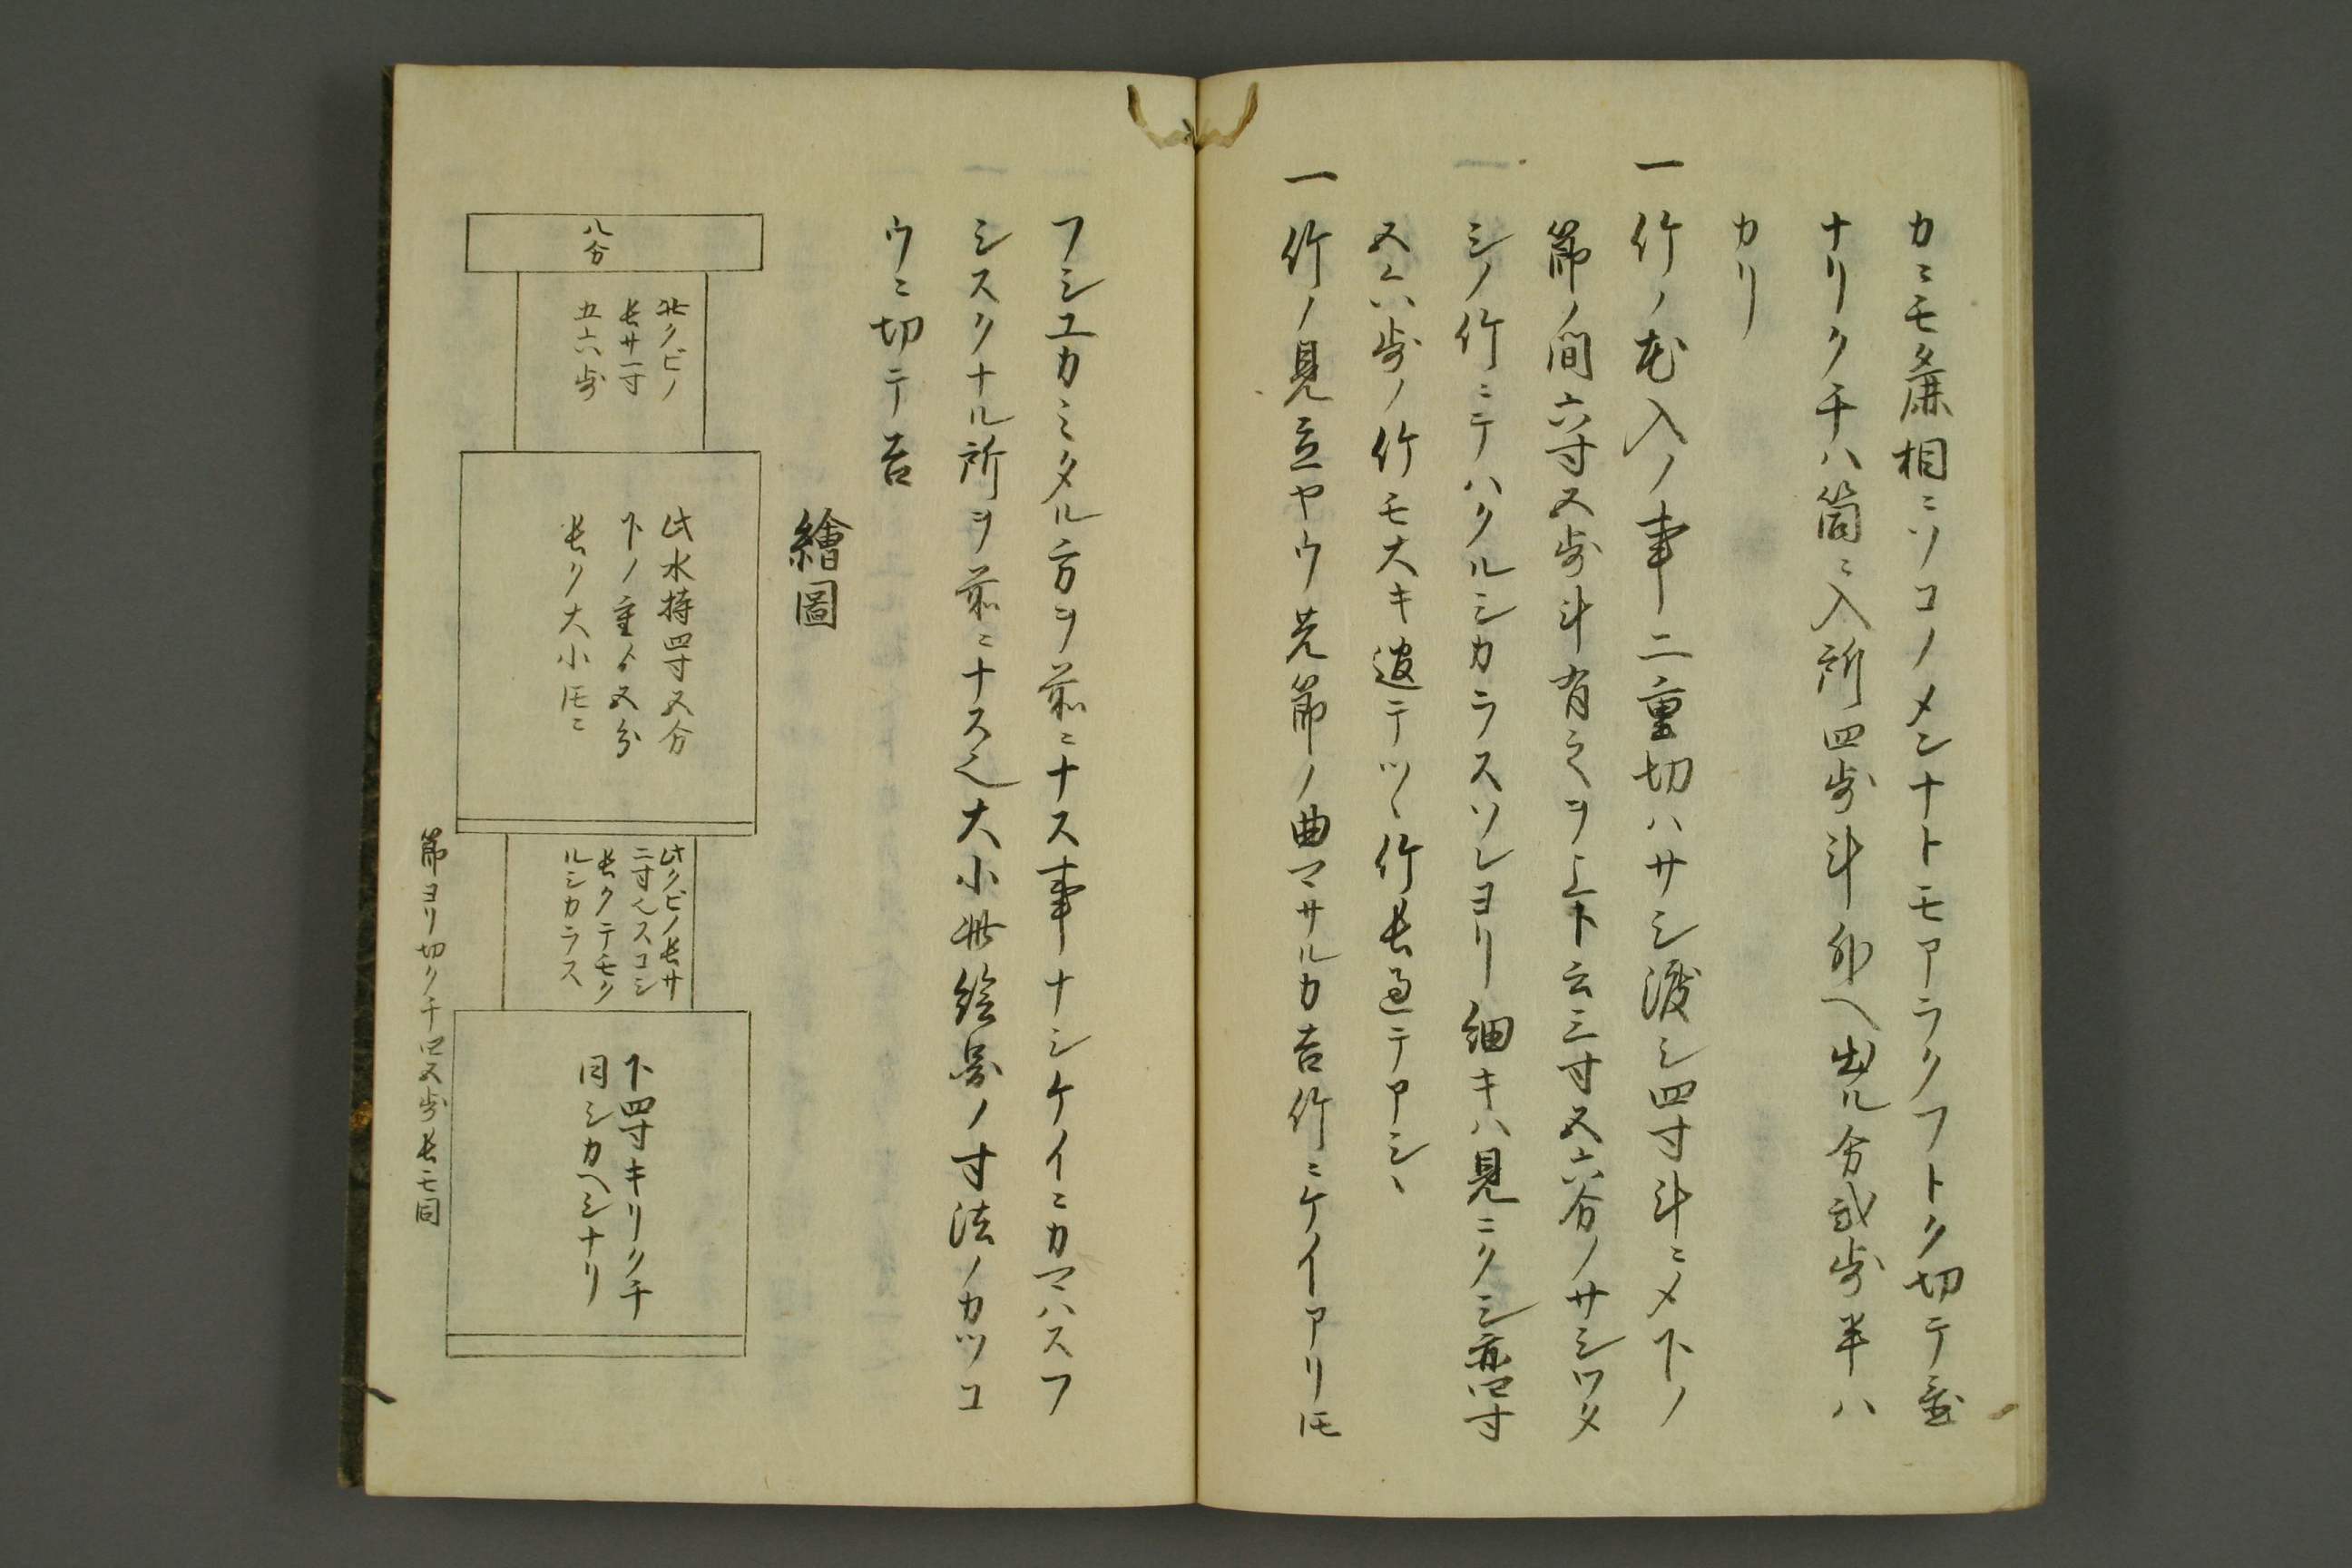 カニモ麁相ニソコノメンナトモアラクフトク切テ置
ナリクチハ筒ニ入所四歩斗外ヘ出ル分弐歩半ハ
カリ
一竹ノ花入ノ事二重切ハサシ渡シ四寸斗ニメ下ノ
節ノ間六寸五歩斗有之ヲ上ト云三寸五六分ノサシワタ
シノ竹ニテハクルシカラスソレヨリ細キハ見ニクシ亦四寸
五六歩ノ竹モ大キ過テツヽ竹長過テアシヽ
一竹ノ見立ヤウ先節ノ曲マサルカ吉竹ニケイアリ𪜈
フシユカミタル方ヲ前ニナス事ナシケイニカマハスフ
シスクナル所ヲ前ニナス也大小此絵図ノ寸法ノカツコ
ウニ切テ吉
繪圖
八分
此クビノ
長サ一寸
五六歩
此水持四寸五分
下ノ重ゟ五分
長ク大小𪜈ニ
此クビノ長サ
二寸也スコシ
長クテモク
ルシカラス
下四寸キリクチ
同シカヘシナリ
節ヨリ切クチ四五歩長モ同